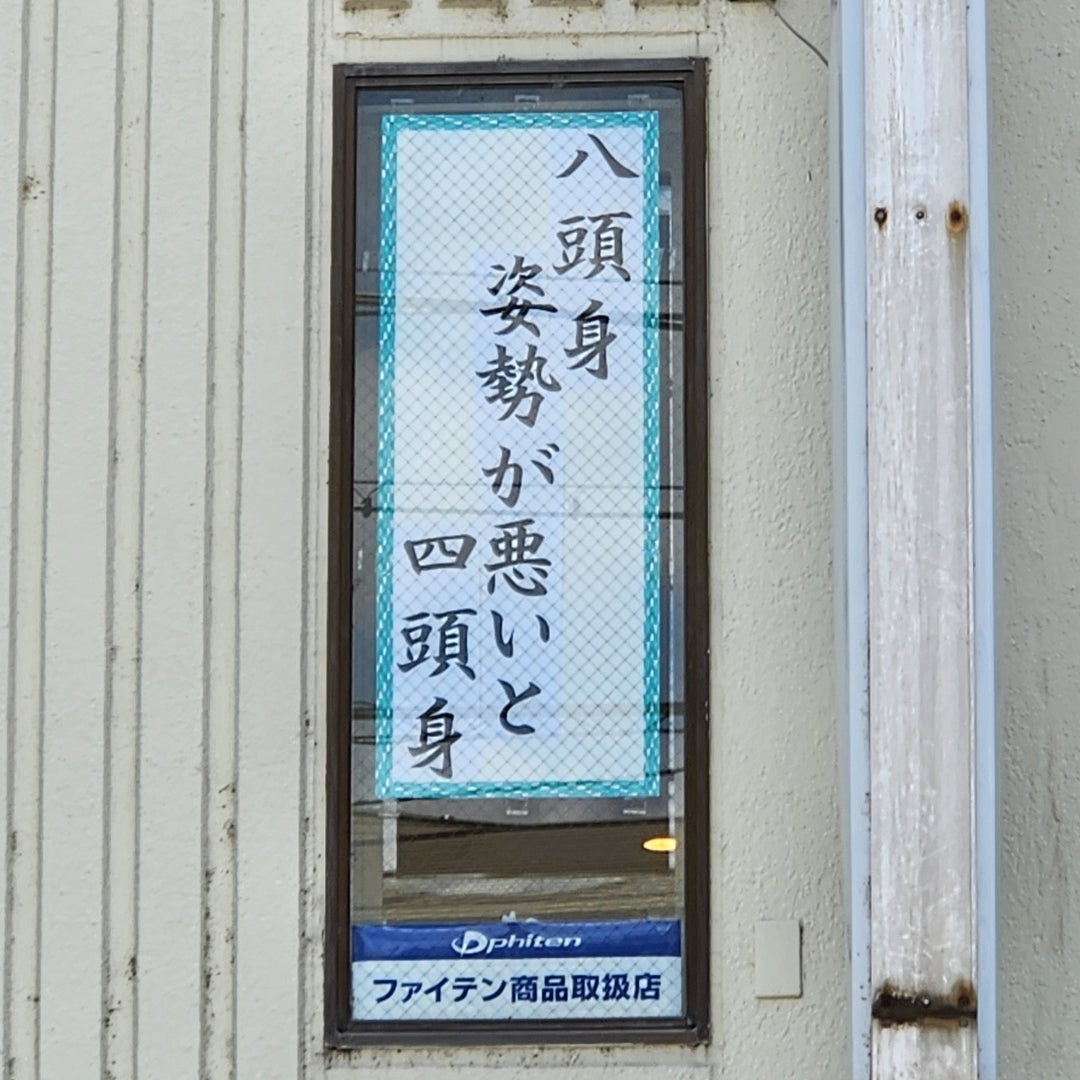 八頭身
姿勢が悪いと
四頭身
phiten
ファイテン商品取扱店